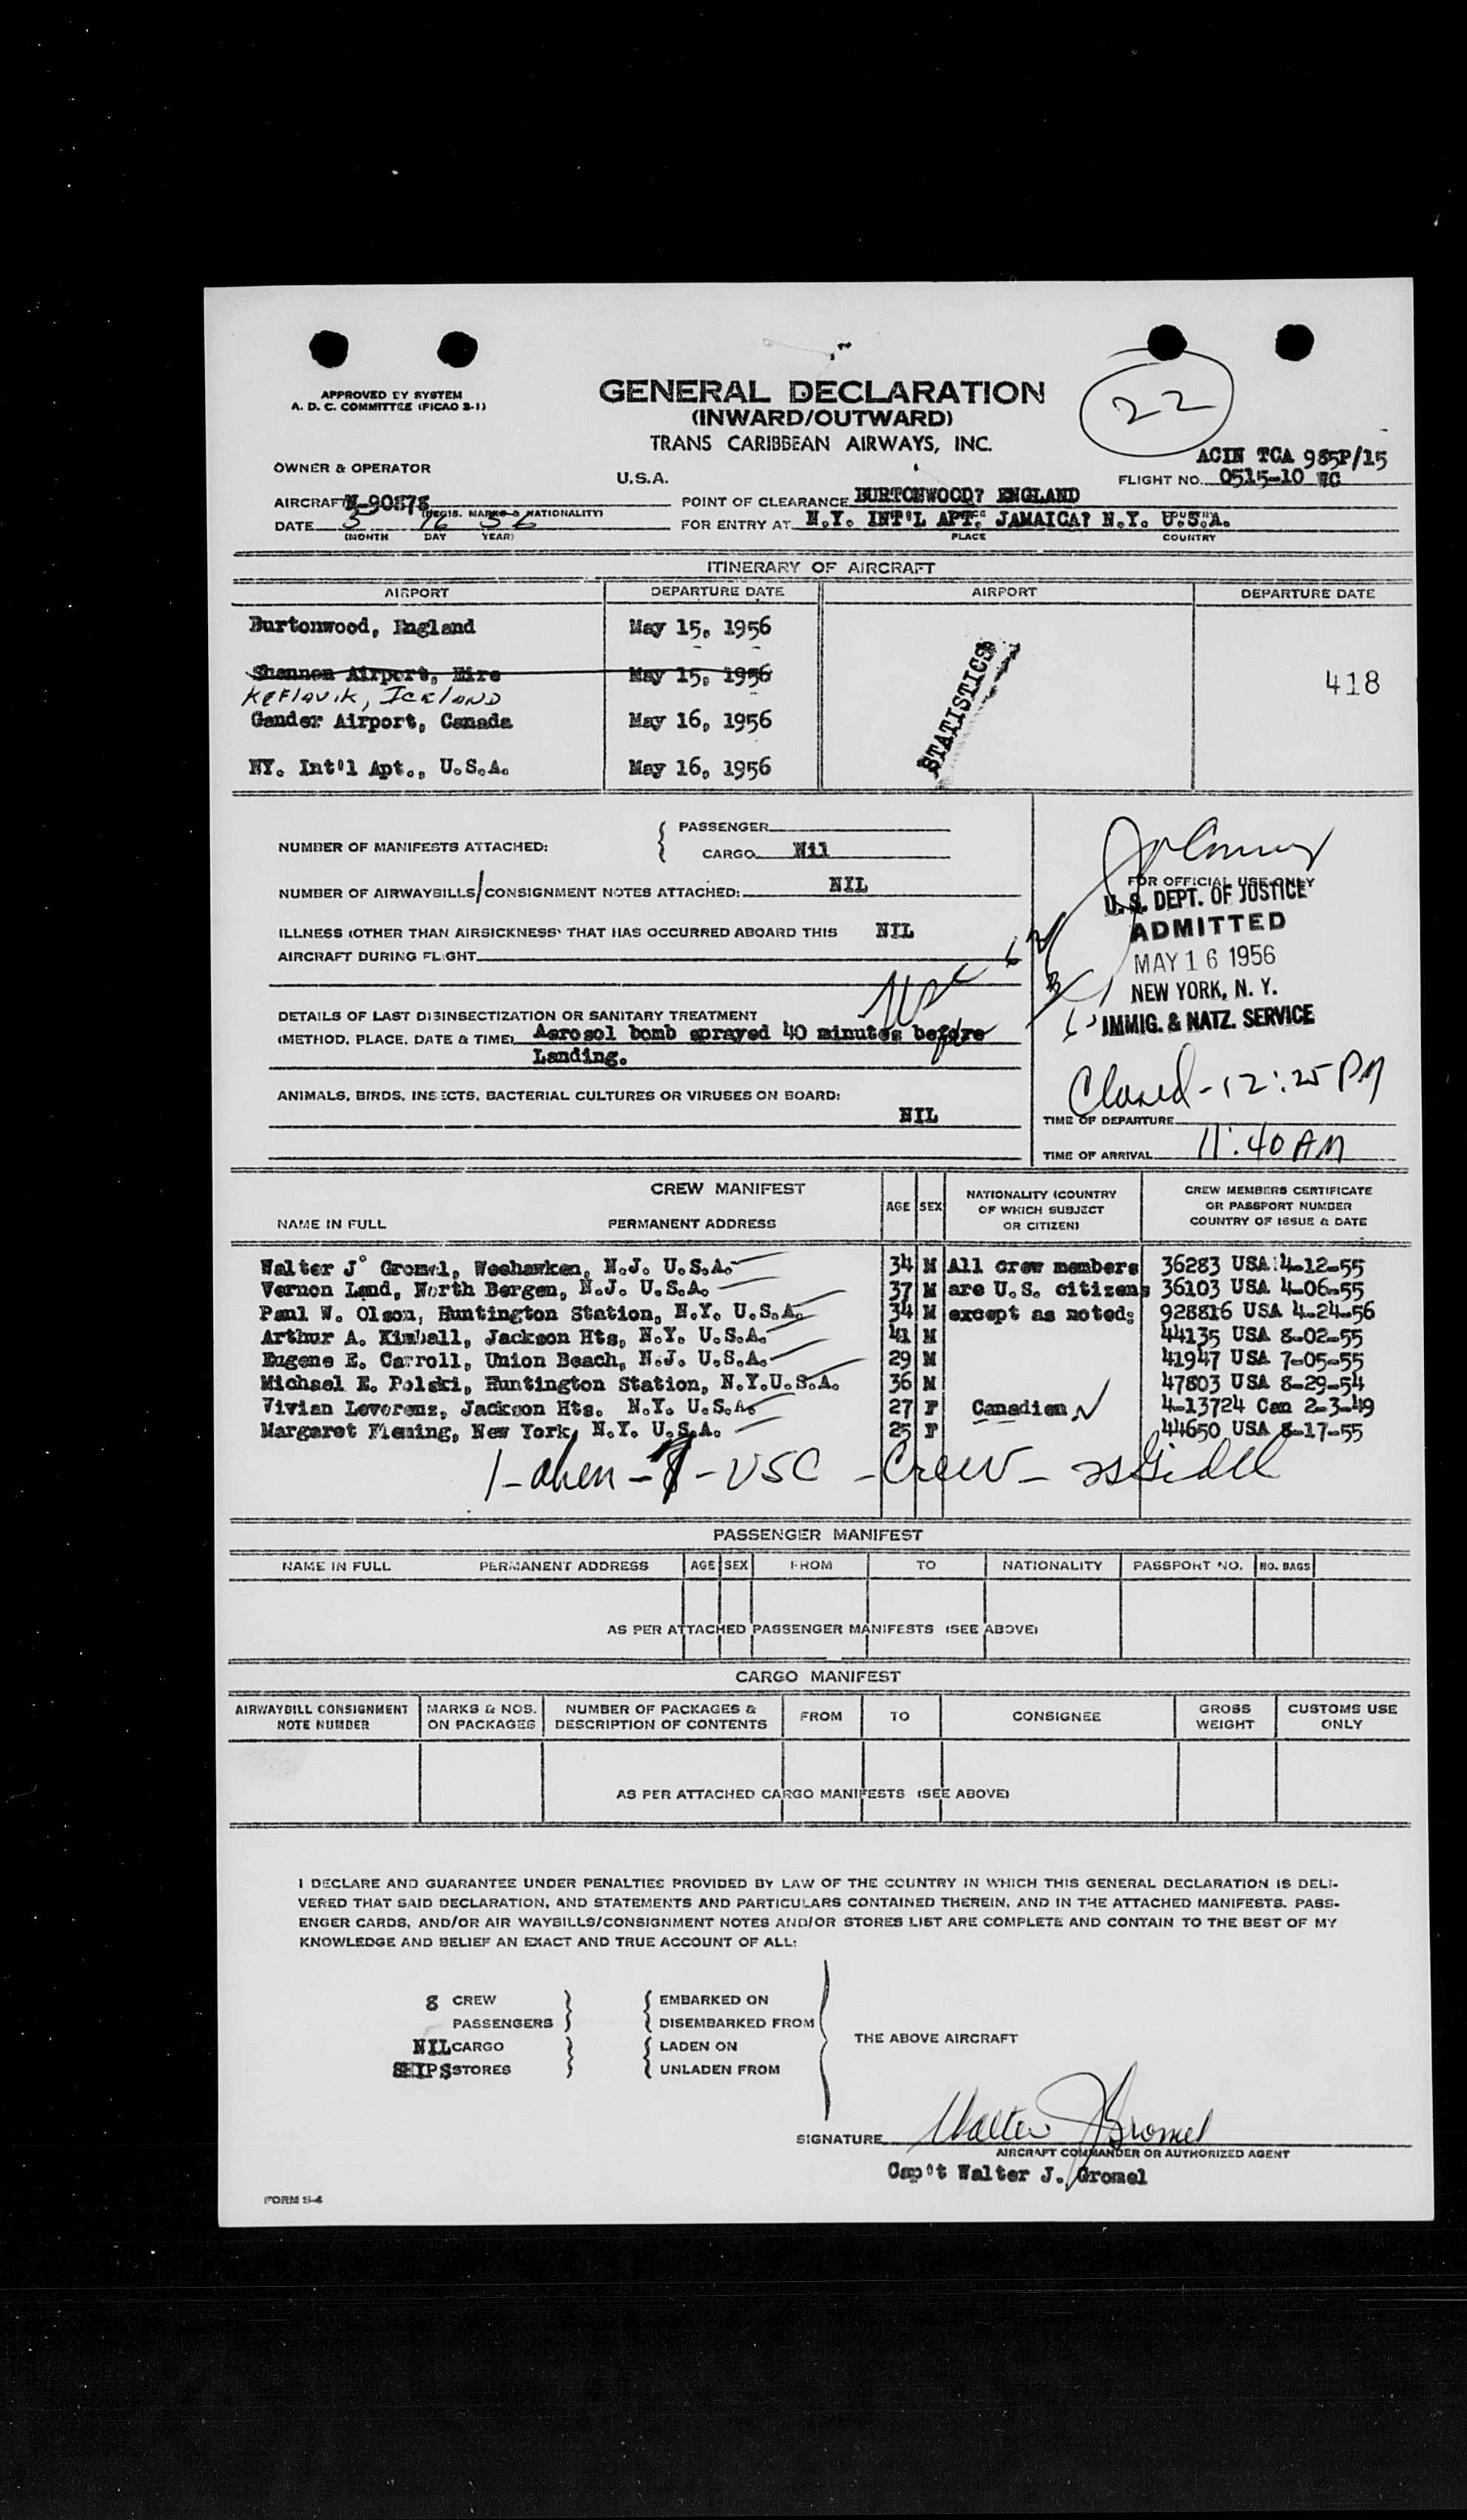 22
APPROVED BY SYSTEM
A. D. C. COMMITTEE (PICAO 3-1)
GENERAL DECLARATION
(INWARD/OUTWARD)
TRANS CARIBBEAN AIRWAYS, INC.
OWNER & OPERATOR
U.S.A.
ACIN TCA 985P/15
FLIGHT NO. 0515-10 WC
AIRCRAFT N-90878
(REGIS. MARKS & NATIONALITY)
POINT OF CLEARANCE BURTONWOOD? ENGLAND
DATE 5 16 56
(MONTH DAY YEAR)
FOR ENTRY AT N.Y. INT'L APT. JAMAICA? N.Y. U.S.A.
PLACE COUNTRY
ITINERARY OF AIRCRAFT
AIRPORT DEPARTURE DATE AIRPORT DEPARTURE DATE
Burtonwood, England May 15, 1956
Shannon Airport, Eire May 15, 1956
KEFLAVIK, ICELAND
Gander Airport, Canada May 16, 1956
NY. Int'l Apt., U.S.A. May 16, 1956
STATISTICS
418
NUMBER OF MANIFESTS ATTACHED:
PASSENGER
CARGO Nil
NUMBER OF AIRWAYBILLS/CONSIGNMENT NOTES ATTACHED: NIL
ILLNESS (OTHER THAN AIRSICKNESS) THAT HAS OCCURRED ABOARD THIS NIL
AIRCRAFT DURING FLIGHT
DETAILS OF LAST DISINSECTIZATION OR SANITARY TREATMENT
(METHOD, PLACE, DATE & TIME) Aerosol bomb sprayed 40 minutes before
Landing.
ANIMALS, BIRDS, INSECTS, BACTERIAL CULTURES OR VIRUSES ON BOARD:
NIL
FOR OFFICIAL USE ONLY
U. S. DEPT. OF JUSTICE
ADMITTED
MAY 16 1956
NEW YORK, N. Y.
IMMIG. & NATZ. SERVICE
Closed - 12:25 PM
TIME OF DEPARTURE
TIME OF ARRIVAL 11:40 AM
CREW MANIFEST
NAME IN FULL PERMANENT ADDRESS AGE SEX
NATIONALITY (COUNTRY
OF WHICH SUBJECT
OR CITIZEN)
CREW MEMBERS CERTIFICATE
OR PASSPORT NUMBER
COUNTRY OF ISSUE & DATE
Walter J. Gromel, Weehawken, N.J. U.S.A. 34 M All crew members 36283 USA 4-12-55
Vernon Land, North Bergen, N.J. U.S.A. 37 M are U.S. citizens 36103 USA 4-06-55
Paul W. Olson, Huntington Station, N.Y. U.S.A. 34 M except as noted: 928816 USA 4-24-56
Arthur A. Kimball, Jackson Hts, N.Y. U.S.A. 41 M 44135 USA 8-02-55
Eugene E. Carroll, Union Beach, N.J. U.S.A. 29 M 41947 USA 7-05-55
Michael E. Polski, Huntington Station, N.Y.U.S.A. 36 M 47803 USA 8-29-54
Vivian Leverenz, Jackson Hts. N.Y. U.S.A. 27 F Canadian 4-13724 Can 2-3-49
Margaret Fleming, New York, N.Y. U.S.A. 25 F 44650 USA 8-17-55
1 - alien - 7 - USC - Crew -
PASSENGER MANIFEST
NAME IN FULL PERMANENT ADDRESS AGE SEX FROM TO NATIONALITY PASSPORT NO. NO. BAGS
AS PER ATTACHED PASSENGER MANIFESTS (SEE ABOVE)
CARGO MANIFEST
AIRWAYBILL CONSIGNMENT
NOTE NUMBER
MARKS & NOS.
ON PACKAGES
NUMBER OF PACKAGES &
DESCRIPTION OF CONTENTS
FROM TO CONSIGNEE
GROSS
WEIGHT
CUSTOMS USE
ONLY
AS PER ATTACHED CARGO MANIFESTS (SEE ABOVE)
I DECLARE AND GUARANTEE UNDER PENALTIES PROVIDED BY LAW OF THE COUNTRY IN WHICH THIS GENERAL DECLARATION IS DELI-
VERED THAT SAID DECLARATION, AND STATEMENTS AND PARTICULARS CONTAINED THEREIN, AND IN THE ATTACHED MANIFESTS. PASS-
ENGER CARDS, AND/OR AIR WAYBILLS/CONSIGNMENT NOTES AND/OR STORES LIST ARE COMPLETE AND CONTAIN TO THE BEST OF MY
KNOWLEDGE AND BELIEF AN EXACT AND TRUE ACCOUNT OF ALL:
8 CREW EMBARKED ON
PASSENGERS DISEMBARKED FROM
NIL CARGO LADEN ON
SHIPS STORES UNLADEN FROM
THE ABOVE AIRCRAFT
SIGNATURE Walter J Gromel
AIRCRAFT COMMANDER OR AUTHORIZED AGENT
Cap't Walter J. Gromel
FORM S-4